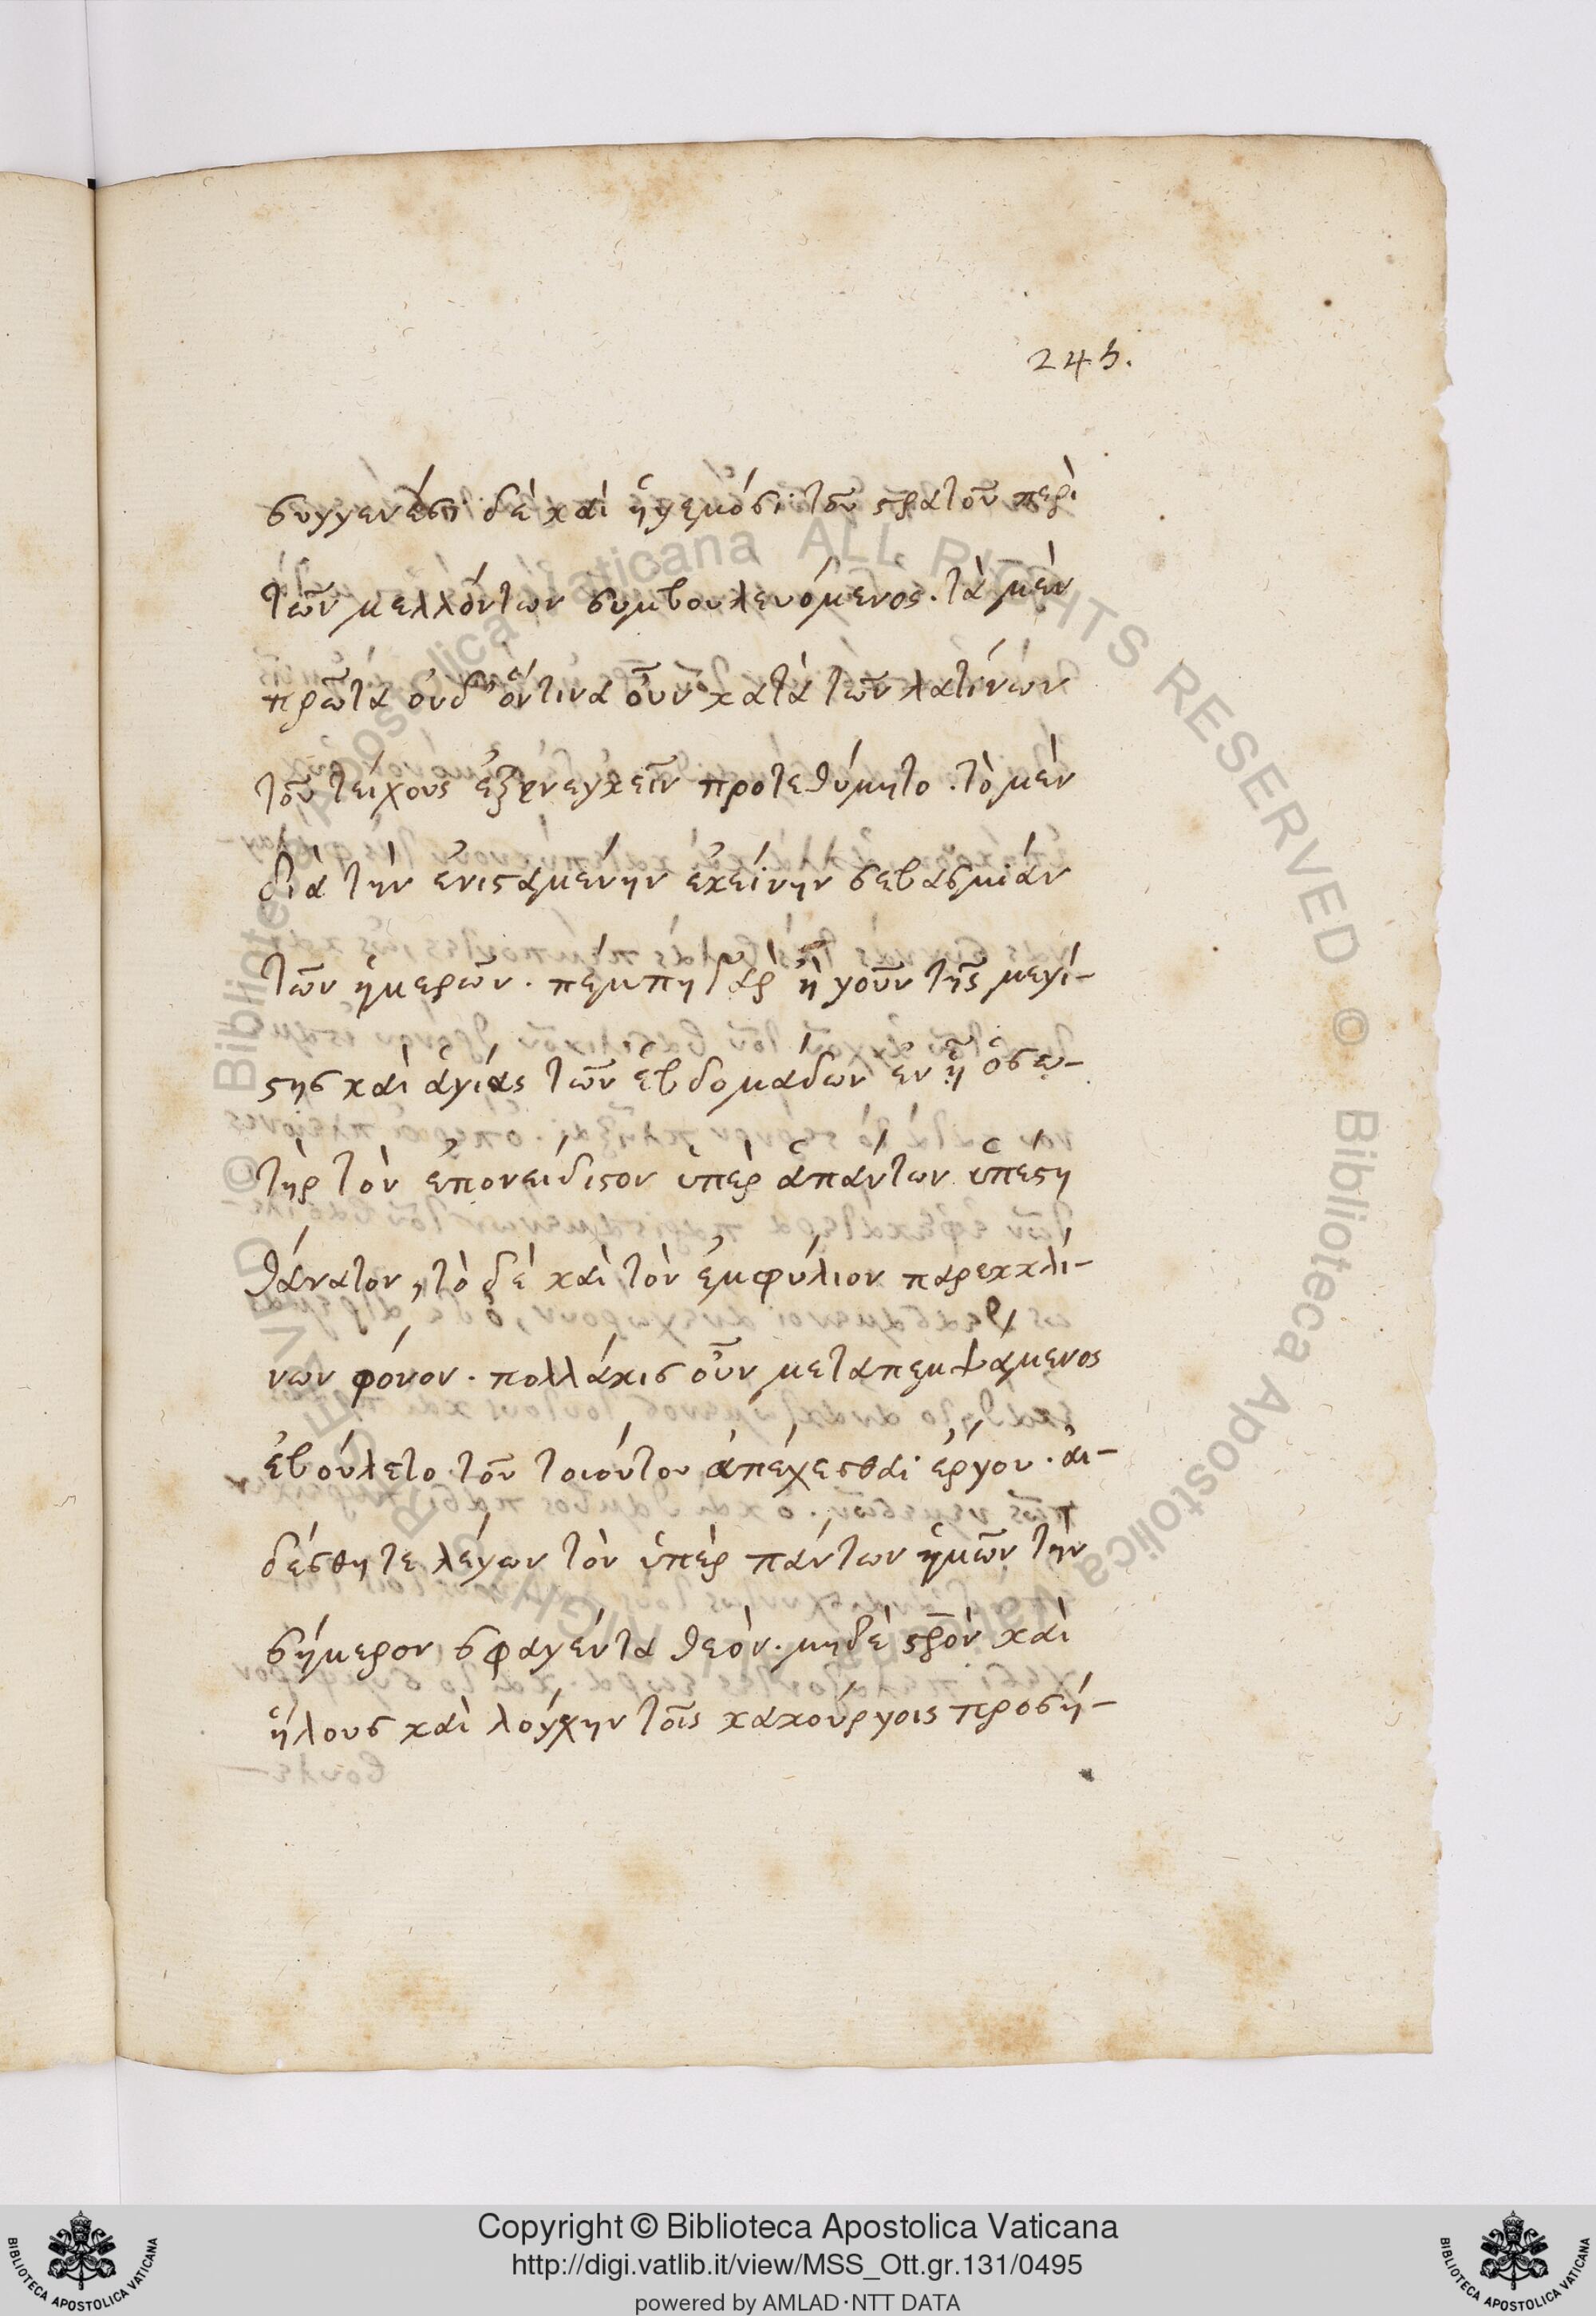 245.
συγγενέσι δὲ καὶ ἡγεμόσι τοῦ στρατοῦ περὶ
τῶν μελλόντων συμβουλευόμενος. τὰ μὲν
πρῶτα οὐδ' ὅντινα οὖν κατὰ τῶν λατίνων
τοῦ τείχους ἐξενεγκεῖν προτεθύμητο. τὸ μὲν
διὰ τὴν ἐνισταμένην ἐκείνην σεβασμίαν
τῶν ἡμερῶν. πέμπη γὰρ ἦ γοῦν τῆς μεγί-
στης καὶ ἁγίας τῶν ἑβδομάδων ἐν ᾗ ὁ σω-
τὴρ τὸν ἐπονείδιστον ὑπὲρ ἁπάντων ὑπέστη
θάνατον, τὸ δὲ καὶ τὸν ἐμφύλιον παρεκκλί-
νων φόνον. πολλάκις οὖν μεταπεμψάμενος
ἐβούλετο τοῦ τοιούτου ἀπέχεσθαι ἔργου. αἰ-
δέσθητε λέγων τὸν ὑπὲρ πάντων ἡμῶν τὴν
σήμερον σφαγέντα θεόν. μηδὲ στρὸν καὶ
ἥλους καὶ λόγχην τοῖς κακούργοις προσή-
Copyright © Biblioteca Apostolica Vaticana
http://digi.vatlib.it/view/MSS_Ott.gr.131/0495
powered by AMLAD·NTT DATA